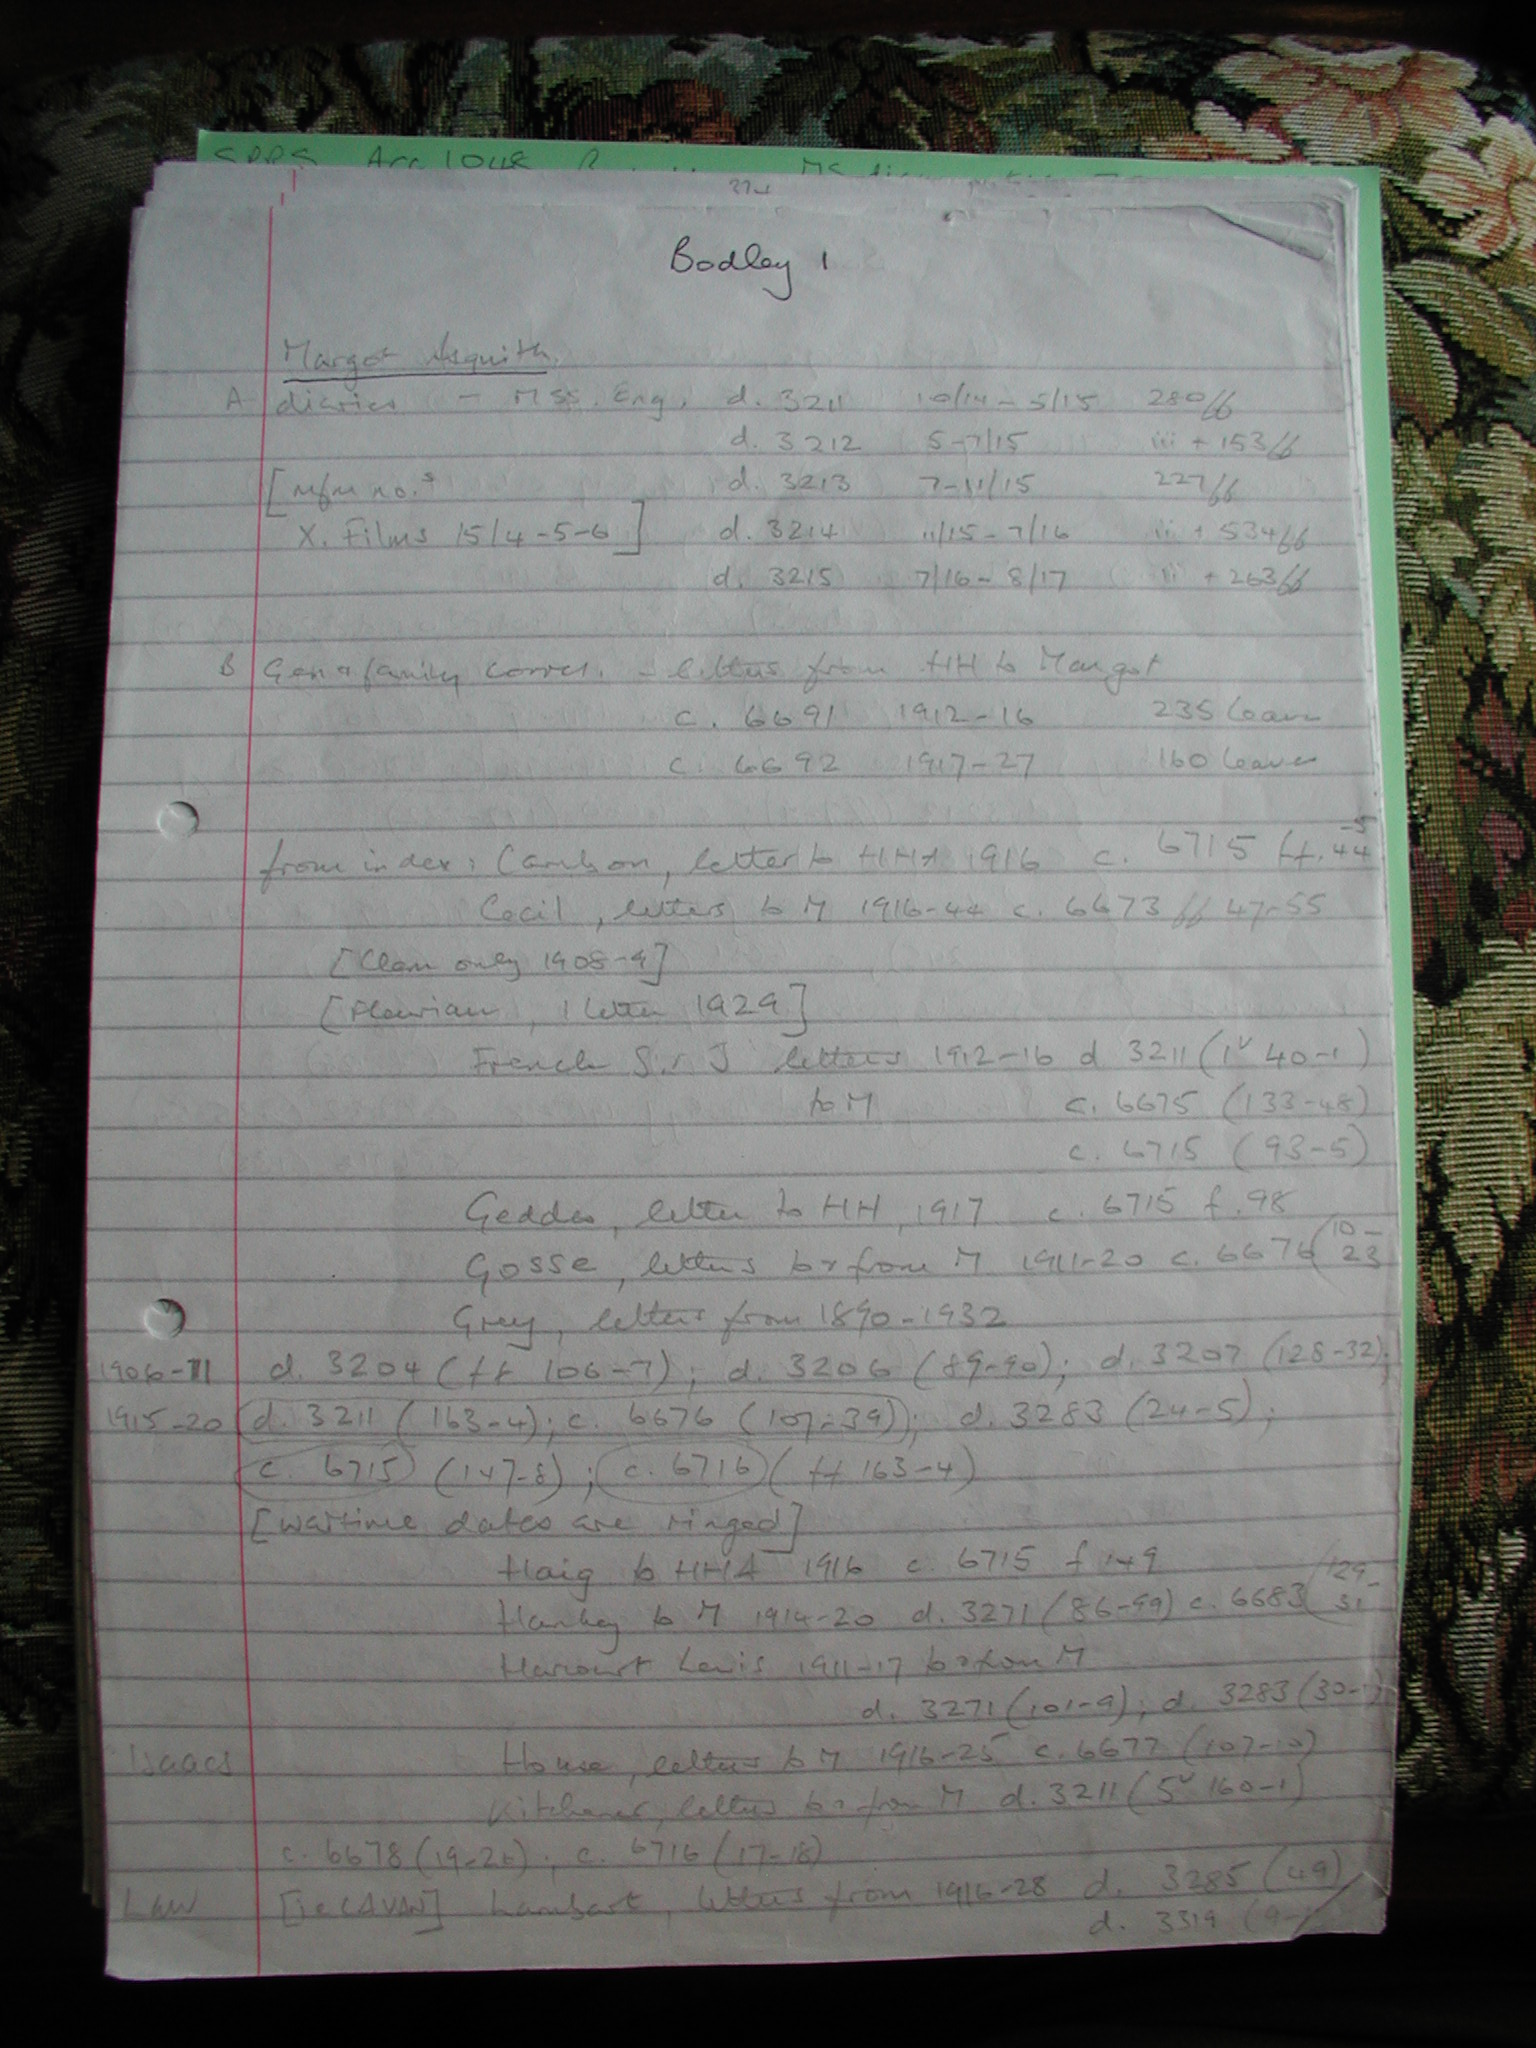 SPPS Arc 1048
Bodley 1
Margot Asquith
A diaries - MSS. Eng. d. 3211 10/14 - 5/15 280ff
d. 3212 5-7/15 iii + 153ff
[mfm no.s d. 3213 7-11/15 227ff
X. Films 15/4-5-6] d. 3214 11/15 - 7/16 ii + 534ff
d. 3215 7/16 - 8/17 iii + 263ff
B Gen & family corres. - letters from HH to Margot
c. 6691 1912-16 235 leaves
c. 6692 1917-27 160 leaves
from index: Cambon, letter to HHA 1916 c. 6715 ff. 44-5
Cecil, letters to M 1916-44 c. 6673 ff 47-55
[Clem only 1908-9]
[Fleuriau, 1 letter 1929]
French Sir J letters 1912-16 d 3211 (1v 40-1)
to M c. 6675 (133-48)
c. 6715 (93-5)
Geddes, letter to HH, 1917 c. 6715 f. 98
Gosse, letters to & from M 1911-20 c. 6676 (10-23
Grey, letters from 1890-1932
1906-11 d. 3204 (ff 106-7); d. 3206 (89-90); d. 3207 (128-32);
1915-20 d. 3211 (163-4); c. 6676 (107-39); d. 3283 (24-5);
c. 6715 (147-8); c. 6716 (ff 163-4)
[wartime dates are ringed]
Haig to HHA 1916 c. 6715 f 149
Hankey to M 1914-20 d. 3271 (86-99) c. 6683 (129-31
Harcourt Lewis 1911-17 to & from M
d. 3271 (101-9); d. 3283 (30-1)
Isaacs House, letters to M 1916-25 c. 6677 (107-10)
Kitchener, letters to & from M d. 3211 (5v 160-1)
c. 6678 (19-26); c. 6716 (17-18)
Law [ie CAVAN] Lambart, letters from 1916-28 d. 3285 (49)
d. 3319 (9-